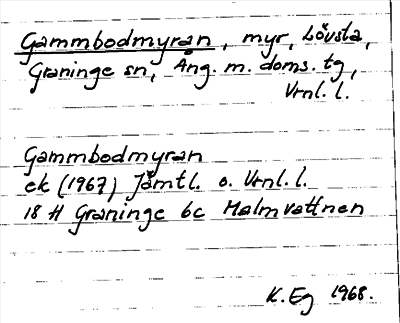 Gammbodmyran, myr, Lövsta,
Graninge sn, Ång. m. doms. tg,
Vrnl. l.
Gammbodmyran
ek (1967) Jämtl. o. Vrnl. l.
18 H Graninge 6c Malmvattnen
K. Eg 1968.